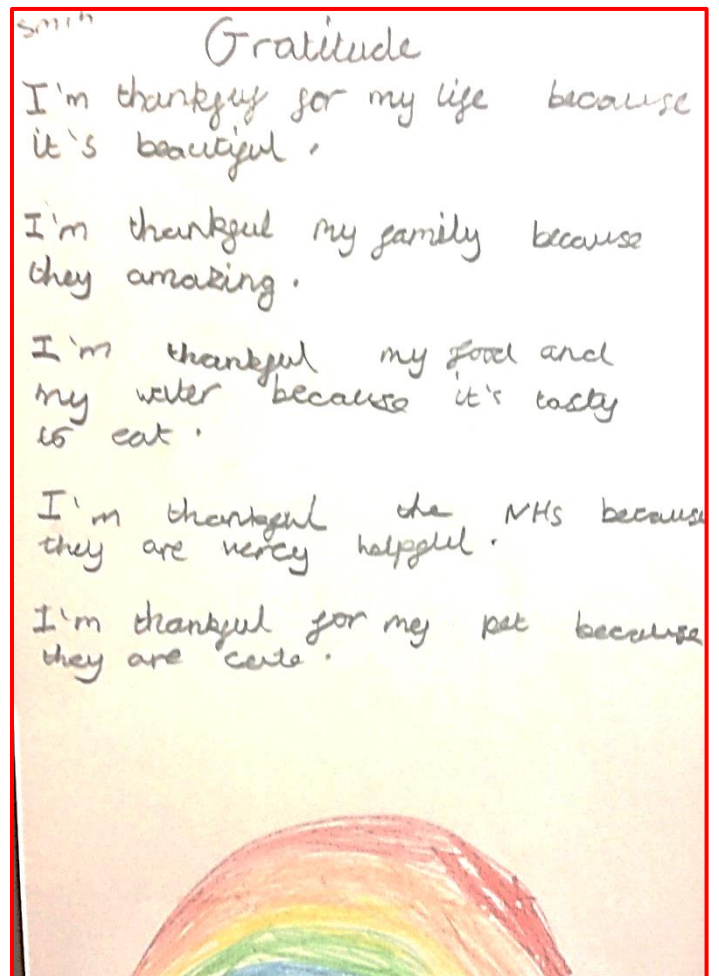 Gratitude
I'm thankful for my life because
it's beautiful.
I'm thankful my family because
they amazing.
I'm thankful my food and
my water because it's tasty
to eat.
I'm thankful the NHS because
they are very helpful.
I'm thankful for my pet because
they are cute.